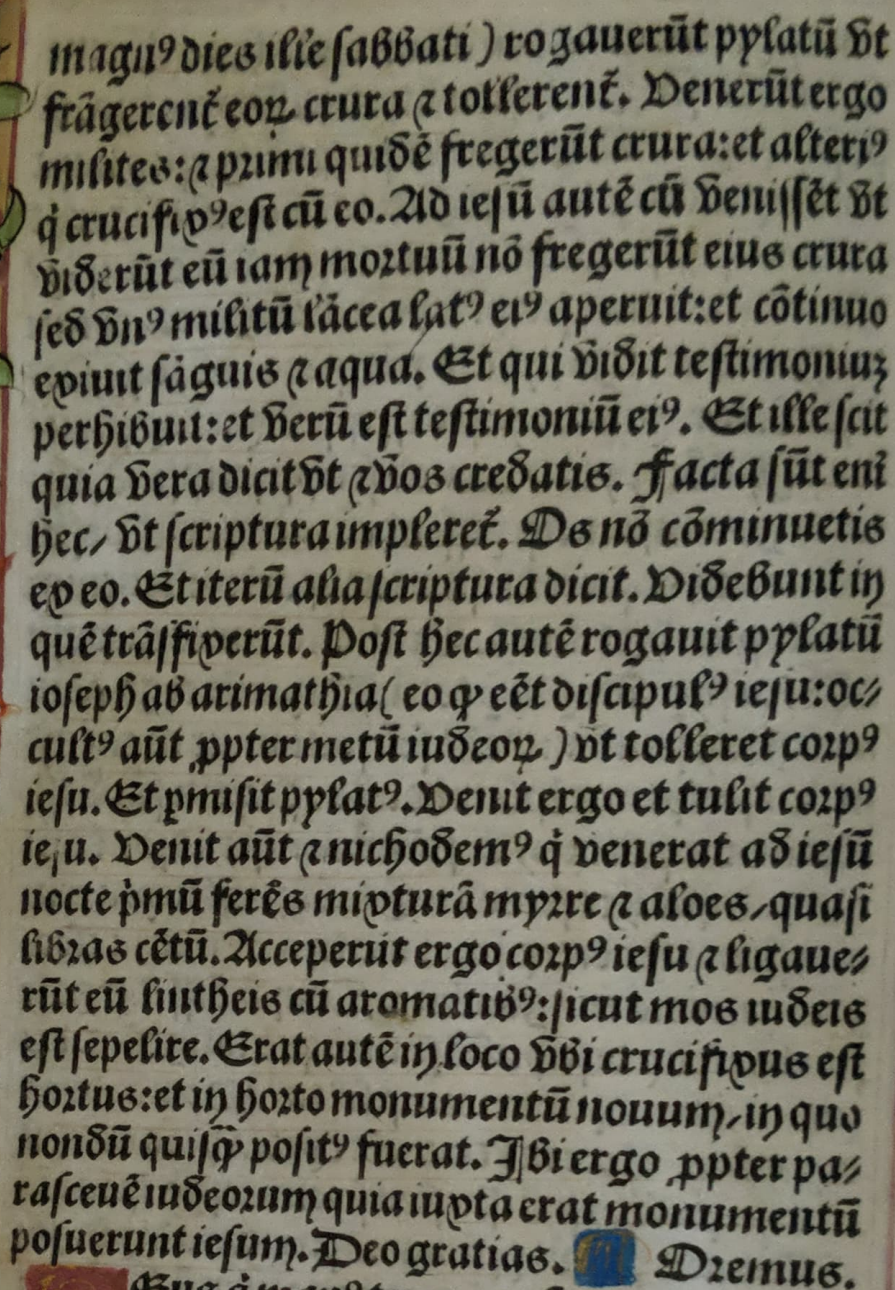 magnꝰ dies ille sabbati) rogauerūt pylatū vt
frāgerent̄ eoꝝ crura ⁊ tollerent̄. Venerūt ergo
milites: ⁊ primi quidē fregerūt crura: et alteriꝰ
q̇ crucifixꝰ est cū eo. Ad iesū autē cū venissēt vt
viderūt eū iam mortuū nō fregerūt eius crura
sed vnꝰ militū lācea latꝰ eiꝰ aperuit: et cōtinuo
exiuit sāguis ⁊ aqua. Et qui vidit testimoniuꝫ
perhibuit: et verū est testimoniū eiꝰ. Et ille scit
quia vera dicit vt ⁊ vos credatis. Facta sūt eni̅
hec/ vt scriptura impleret̄. Os nō cōminuetis
ex eo. Et iterū alia scriptura dicit. Videbunt in
quē trāsfixerūt. Post hec autē rogauit pylatū
ioseph ab arimathia( eo ꝙ eēt discipulꝰ iesu: oc⸗
cultꝰ aūt ꝓpter metū iudeoꝝ) vt tolleret corpꝰ
iesu. Et ꝑmisit pylatꝰ. Venit ergo et tulit corpꝰ
iesu. Venit aūt ⁊ nichodemꝰ q̇ venerat ad iesū
nocte ṗmū ferēs mixturā myrre ⁊ aloes/ quasi
libras cētū. Acceperūt ergo corpꝰ iesu ⁊ ligaue⸗
rūt eū lintheis cū aromatibꝰ: sicut mos iudeis
est sepelire. Erat autē in loco vbi crucifixus est
hortus: et in horto monumentū nouum/ in quo
nondū quisꝙ̄ positꝰ fuerat. Ibi ergo ꝓpter pa⸗
rasceuē iudeorum quia iuxta erat monumentū
posuerunt iesum. Deo gratias. Oremus.